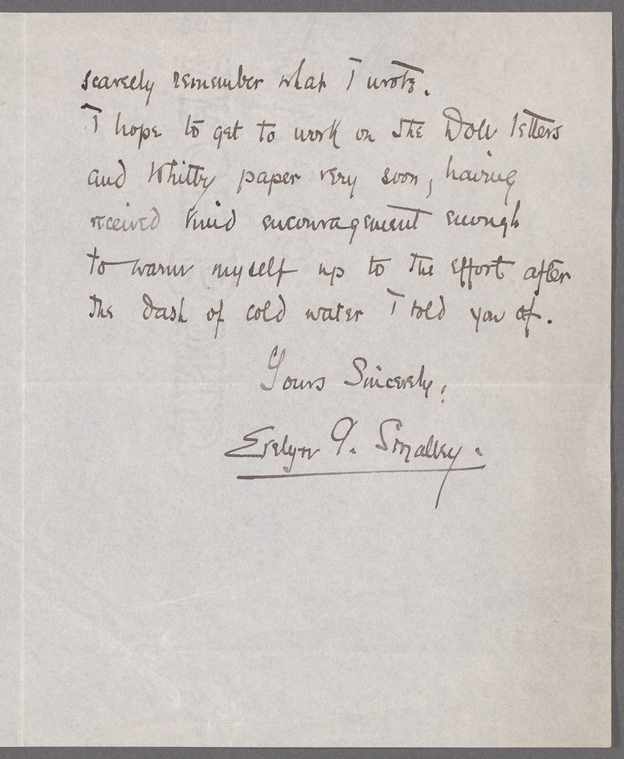 scarcely remember what I wrote.
I hope to get to work on the Doll letters
and Whitby paper very soon, having
received kind encouragement enough
to warm myself up to the effort after
the dash of cold water I told you of.
Yours Sincerely,
Evelyn G. Smalley.